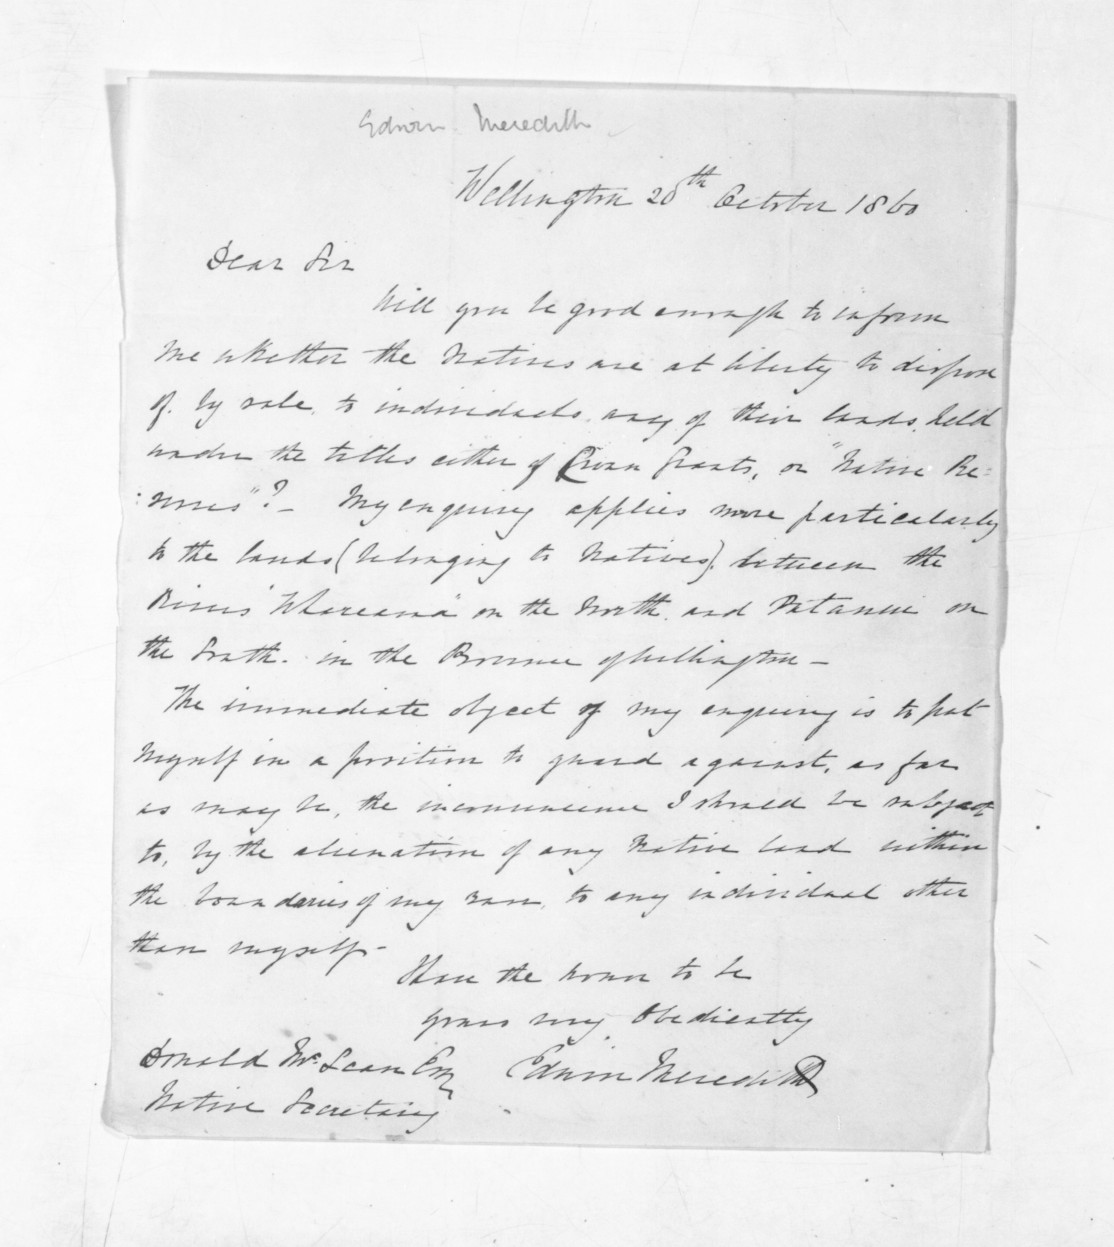 Edwin Meredith
Wellington 20th October 1860
Dear Sir
Will you be good enough to inform
me whether the Natives are at liberty to dispose
of by sale, to individuals any of their lands, held
under the titles either of Crown Grants, or "Native Re=
=serves"? - My enquiry applies more particularly
to the lands (belonging to Natives), between the
Rivers "Whareama" on the North and Pataninui on
the South. in the Province of Wellington -
The immediate object of my enquiry is to put
myself in a position to guard against, as far
as may be, the inconvenience I should be subject
to, by the alienation of any Native land within
the boundaries of my run, to any individual other
than myself -
I have the honor to be
yours very Obediently
Donald McLean Esq Edwin Meredith
Native Secretary